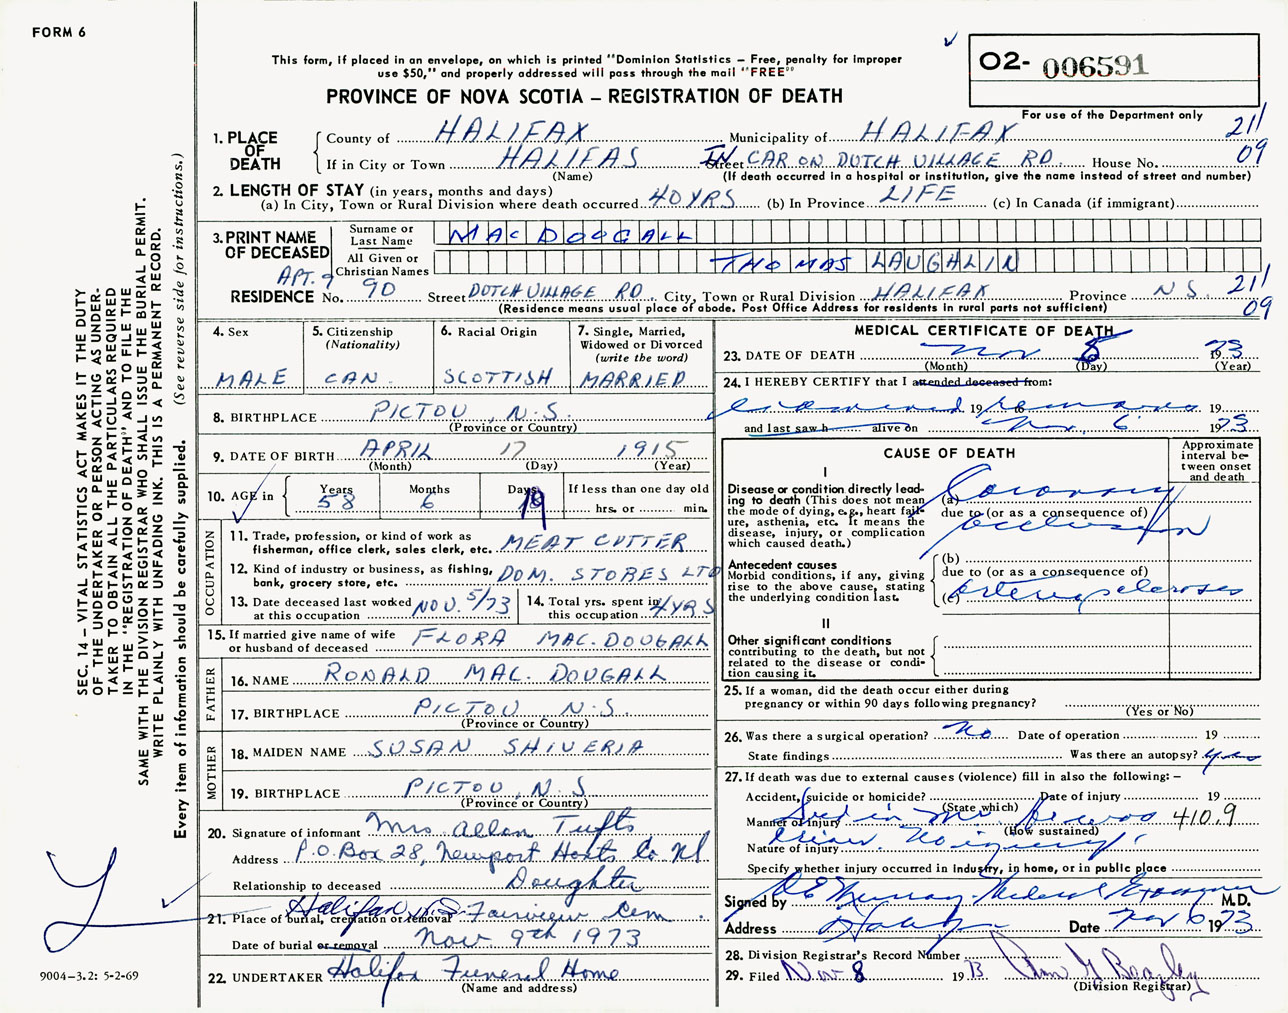 FORM 6
This form, if placed in an envelope, on which is printed "Dominion Statistics – Free, penalty for improper
use $50," and properly addressed will pass through the mail "FREE"
PROVINCE OF NOVA SCOTIA – REGISTRATION OF DEATH
O2- 006591
For use of the Department only
211
09
1. PLACE OF DEATH
County of HALIFAX Municipality of HALIFAX
If in City or Town HALIFAS IN Street CAR ON DUTCH VILLAGE RD House No.
(Name) (If death occurred in a hospital or institution, give the name instead of street and number)
2. LENGTH OF STAY (in years, months and days)
(a) In City, Town or Rural Division where death occurred 40 YRS (b) In Province LIFE (c) In Canada (if immigrant)
3. PRINT NAME OF DECEASED
Surname or Last Name MAC DOUGALL
All Given or Christian Names THOMAS LAUGHLIN
APT. 9
RESIDENCE No. 90 Street DUTCH VILLAGE RD. City, Town or Rural Division HALIFAX Province N.S. 211
(Residence means usual place of abode. Post Office Address for residents in rural parts not sufficient) 09
4. Sex
MALE
5. Citizenship
(Nationality)
CAN.
6. Racial Origin
SCOTTISH
7. Single, Married,
Widowed or Divorced
(write the word)
MARRIED
8. BIRTHPLACE PICTOU, N.S.
(Province or Country)
9. DATE OF BIRTH APRIL 17 1915
(Month) (Day) (Year)
10. AGE in
Years 58
Months 6
Days 19
If less than one day old
hrs. or min.
OCCUPATION
11. Trade, profession, or kind of work as
fisherman, office clerk, sales clerk, etc. MEAT CUTTER
12. Kind of industry or business, as fishing,
bank, grocery store, etc. DOM. STORES LTD
13. Date deceased last worked
at this occupation NOV. 5/73
14. Total yrs. spent in
this occupation 4 YRS
15. If married give name of wife
or husband of deceased FLORA MAC.DOUGALL
FATHER
16. NAME RONALD MAC. DOUGALL
17. BIRTHPLACE PICTOU N.S.
(Province or Country)
MOTHER
18. MAIDEN NAME SUSAN SHIVERIA
19. BIRTHPLACE PICTOU, N.S
(Province or Country)
20. Signature of informant Mrs. Allan Tufts
Address P.O. Box 28, Newport Hants Co NS
Relationship to deceased Doughter
Halifax N.S. Fairview Cem.
21. Place of burial, cremation or removal
Date of burial or removal Nov 9th 1973
22. UNDERTAKER Halifax Funeral Home
(Name and address)
MEDICAL CERTIFICATE OF DEATH
23. DATE OF DEATH Nov 5 1973
(Month) (Day) (Year)
24. I HEREBY CERTIFY that I attended deceased from:
examined 19 to remains 19
and last saw h alive on Nov. 6 1973
CAUSE OF DEATH
Approximate
interval be-
tween onset
and death
I
Disease or condition directly lead-
ing to death (This does not mean
the mode of dying, e.g., heart fail-
ure, asthenia, etc. It means the
disease, injury, or complication
which caused death.)
(a) Coronary
due to (or as a consequence of)
occlusion
Antecedent causes
Morbid conditions, if any, giving
rise to the above cause, stating
the underlying condition last.
(b)
due to (or as a consequence of)
(c) Arteriosclerosis
II
Other significant conditions
contributing to the death, but not
related to the disease or condi-
tion causing it.
25. If a woman, did the death occur either during
pregnancy or within 90 days following pregnancy?
(Yes or No)
26. Was there a surgical operation? No Date of operation 19
State findings Was there an autopsy? Yes
27. If death was due to external causes (violence) fill in also the following: –
Accident, suicide or homicide? Date of injury 19
(State which)
Manner of injury 410.9
(How sustained)
Nature of injury No injury.
Specify whether injury occurred in industry, in home, or in public place
Signed by Murray Medical Examiner M.D.
Address Halifax Date Nov 6 1973
28. Division Registrar's Record Number
29. Filed Nov 8 1973
(Division Registrar)
SEC. 14 – VITAL STATISTICS ACT MAKES IT THE DUTY
OF THE UNDERTAKER OR PERSON ACTING AS UNDER-
TAKER TO OBTAIN ALL THE PARTICULARS REQUIRED
IN THE "REGISTRATION OF DEATH" AND TO FILE THE
SAME WITH THE DIVISION REGISTRAR WHO SHALL ISSUE THE BURIAL PERMIT.
WRITE PLAINLY WITH UNFADING INK. THIS IS A PERMANENT RECORD.
Every item of information should be carefully supplied. (See reverse side for instructions.)
9004-3.2: 5-2-69